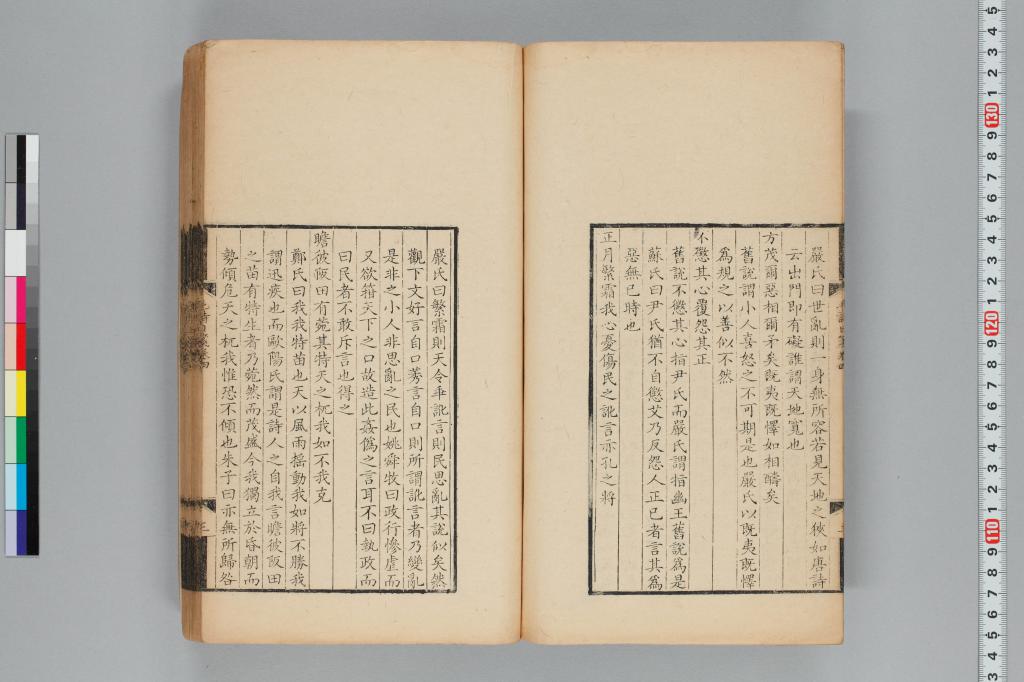 嚴氏曰世亂則一身無所容若見天地之狹如唐詩
云出門即有礙誰謂天地寬也
方茂爾惡相爾矛矣既夷既懌如相醻矣
舊說謂小人喜怒之不可期是也嚴氏以既夷既懌
爲規之以善似不然
不懲其心覆怨其正
舊說不懲其心指尹氏而嚴氏謂指幽王舊說爲是
蘇氏曰尹氏猶不自懲艾乃反怨人正已者言其爲
惡無已時也
正月繁霜我心憂傷民之訛言亦孔之將
嚴氏曰繁霜則天令乖訛言則民思亂其說似矣然
觀下文好言自口莠言自口則所謂訛言者乃變亂
是非之小人非思亂之民也姚舜牧曰政行慘虐而
又欲箝天下之口故造此姦僞之言耳不曰執政而
曰民者不敢斥言也得之
瞻彼阪田有菀其特天之杌我如不我克
鄭氏曰我我特苗也天以風雨摇動我如將不勝我
謂迅疾也而歐陽氏謂是詩人之自我言瞻彼阪田
之苗有特生者乃菀然而茂盛今我獨立於昏朝而
勢傾危天之杌我惟恐不傾也朱子曰亦無所歸咎
110
120
130